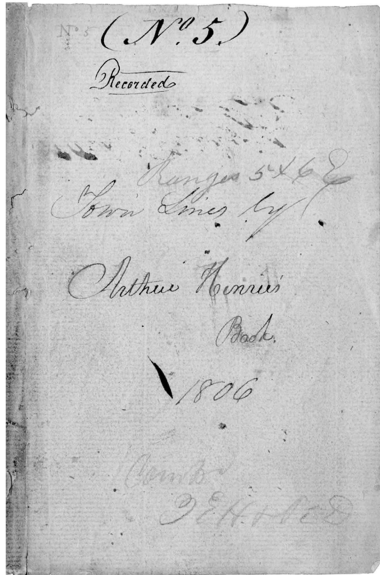 No 5
(No. 5.)
Recorded
Ranges 5 & 6 E
Town Lines by
Arthur Henries
Book.
1806